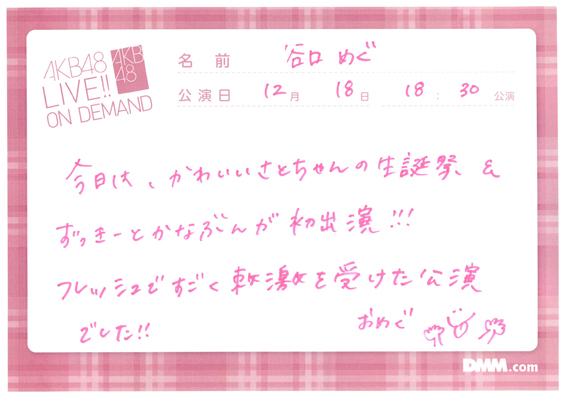 AKB48
LIVE!!
ON DEMAND
AKB
48
名前 谷口 めぐ
公演日 12月 18日 18:30 公演
今日は、かわいいさとちゃんの生誕祭 &
ずっきーとかなぶんが初出演!!!
フレッシュですごく刺激を受けた公演
でした!! おめぐ
DMM.com